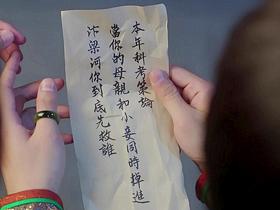 本年科考策論
當你的母親和小妾同時掉進
汴梁河你到底先救誰